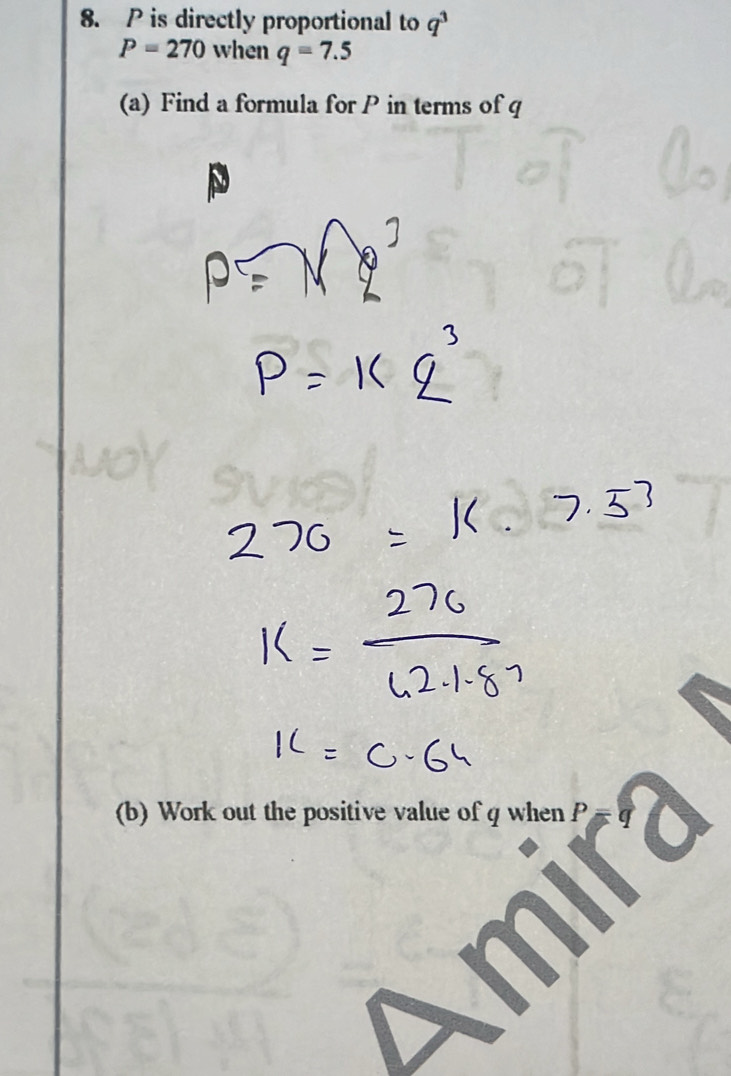 8. P is directly proportional to q³
P = 270 when q = 7.5
(a) Find a formula for P in terms of q
P
P = K q³
P = K q³
270 = K . 7.5³
K = 270 / 421.87
K = 0.64
(b) Work out the positive value of q when P = q
Amira